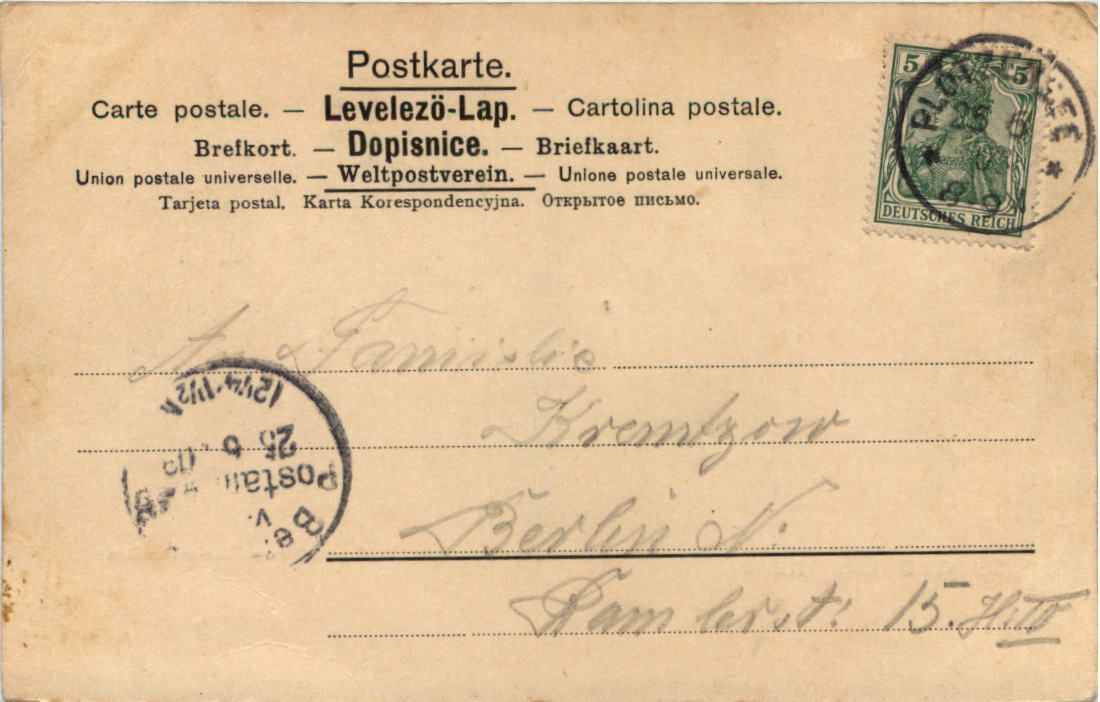 Postkarte.
Carte postale. — Levelezö-Lap. — Cartolina postale.
Brefkort. — Dopisnice. — Briefkaart.
Union postale universelle. — Weltpostverein. — Unione postale universale.
Tarjeta postal. Karta Korespondencyjna. Открытое письмо.
5 5
DEUTSCHES REICH
PLÖTZENSEE
An Familie
Kremtzow
Berlin N.
Ramlerst. 15. H III
12¼-1½
25 6
Postam